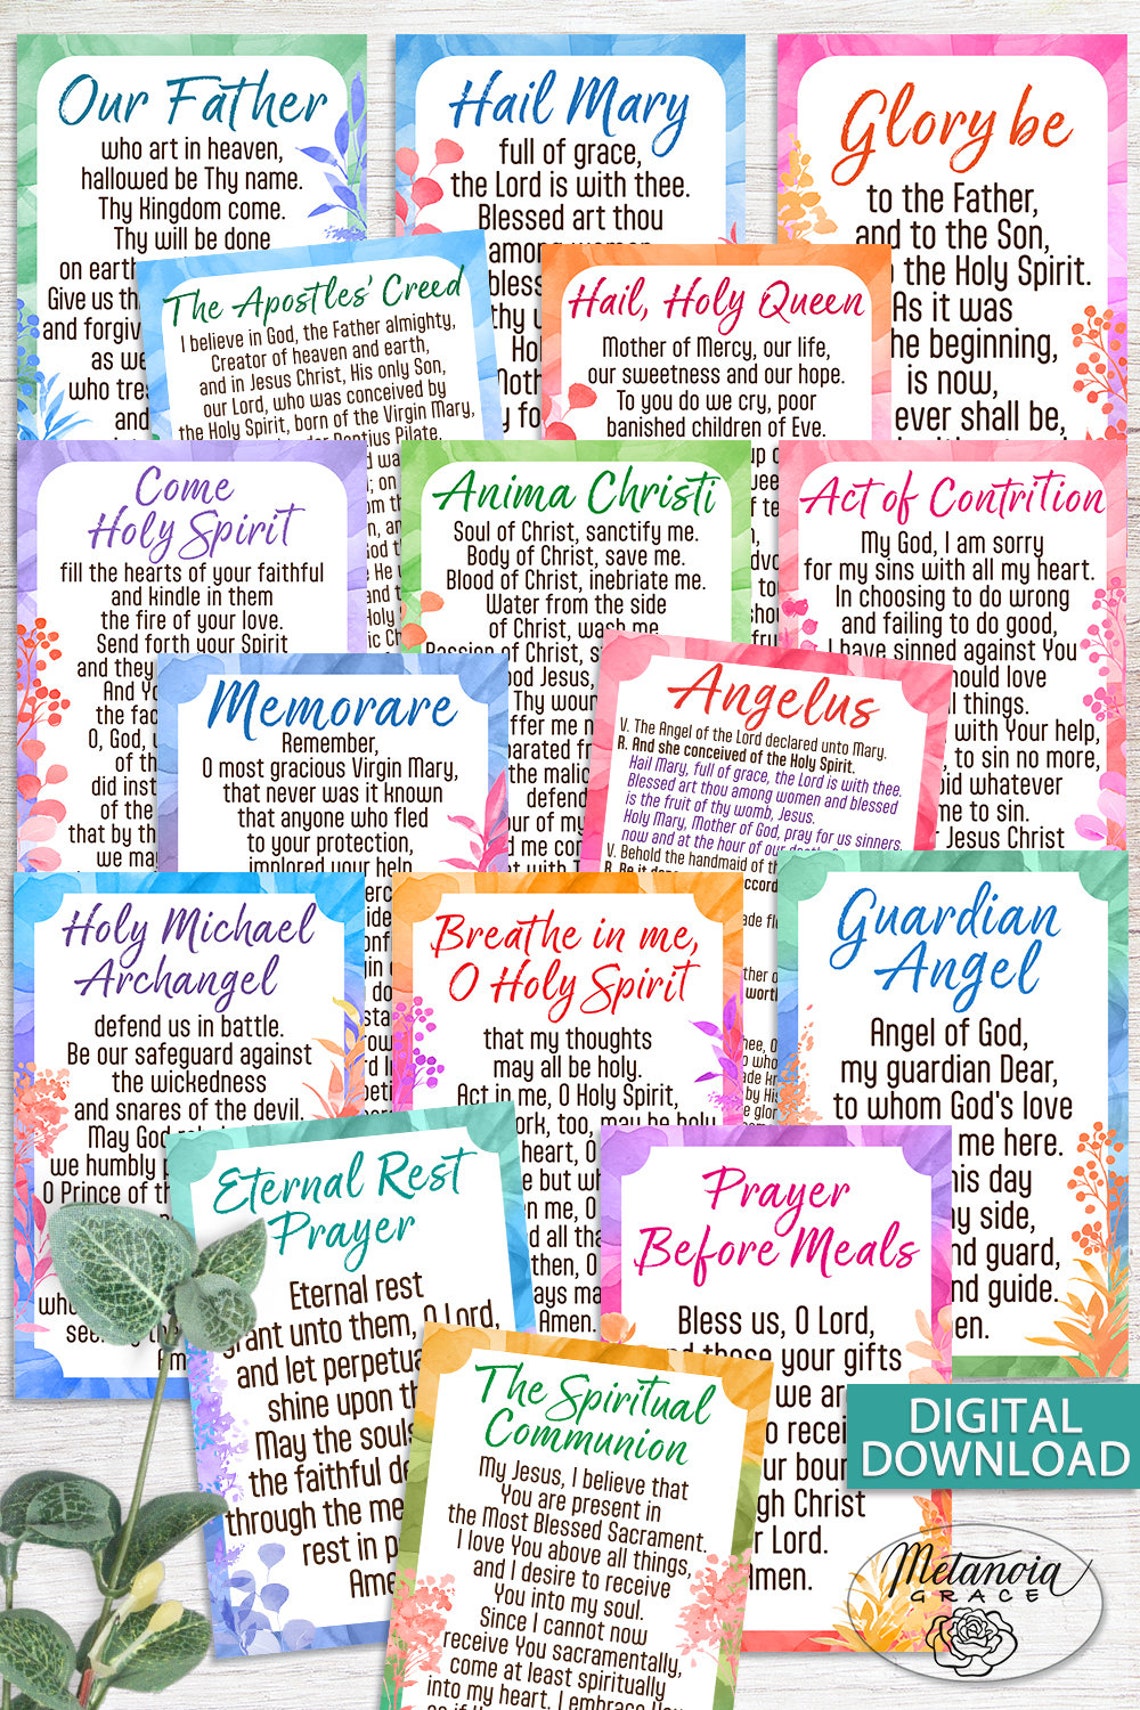 Our Father
who art in heaven,
hallowed be Thy name.
Thy Kingdom come.
Thy will be done
on earth
Give us
and forgiv
as we
who tres
and
Hail Mary
full of grace,
the Lord is with thee.
Blessed art thou
among women
bless
thy
Glory be
to the Father,
and to the Son,
the Holy Spirit.
As it was
he beginning,
is now,
ever shall be,
The Apostles' Creed
I believe in God, the Father almighty,
Creator of heaven and earth,
and in Jesus Christ, His only Son,
our Lord, who was conceived by
the Holy Spirit, born of the Virgin Mary,
Pontius Pilate,
Hail, Holy Queen
Mother of Mercy, our life,
our sweetness and our hope.
To you do we cry, poor
banished children of Eve.
Come
Holy Spirit
fill the hearts of your faithful
and kindle in them
the fire of your love.
Send forth your Spirit
and they
And Yo
the fac
O, God,
of th
did inst
of the
that by th
we may
Anima Christi
Soul of Christ, sanctify me.
Body of Christ, save me.
Blood of Christ, inebriate me.
Water from the side
of Christ, wash me.
Passion of Christ, s
ood Jesus,
Thy woun
ffer me n
parated fr
the malic
defend
our of my
d me com
Act of Contrition
My God, I am sorry
for my sins with all my heart.
In choosing to do wrong
and failing to do good,
I have sinned against You
hould love
l things.
with Your help,
to sin no more,
oid whatever
me to sin.
Jesus Christ
Memorare
Remember,
O most gracious Virgin Mary,
that never was it known
that anyone who fled
to your protection,
implored your help
Angelus
V. The Angel of the Lord declared unto Mary.
R. And she conceived of the Holy Spirit.
Hail Mary, full of grace, the Lord is with thee.
Blessed art thou among women and blessed
is the fruit of thy womb, Jesus.
Holy Mary, Mother of God, pray for us sinners,
now and at the hour of our death.
V. Behold the handmaid of th
Holy Michael
Archangel
defend us in battle.
Be our safeguard against
the wickedness
and snares of the devil.
May God
we humbly p
O Prince of th
Breathe in me,
O Holy Spirit
that my thoughts
may all be holy.
Act in me, O Holy Spirit,
ork, too, may be holy
heart, O
e but wh
n me, O
d all tha
then, O
ays ma
Amen.
Guardian
Angel
Angel of God,
my guardian Dear,
to whom God's love
me here.
his day
y side,
nd guard,
nd guide.
en.
Eternal Rest
Prayer
Eternal rest
grant unto them, O Lord,
and let perpetua
shine upon th
May the souls
the faithful de
through the me
rest in p
Ame
Prayer
Before Meals
Bless us, O Lord,
and these your gifts
we ar
o recei
ur boun
gh Christ
r Lord.
Amen.
The Spiritual
Communion
My Jesus, I believe that
You are present in
the Most Blessed Sacrament.
I love You above all things,
and I desire to receive
You into my soul.
Since I cannot now
receive You sacramentally,
come at least spiritually
into my heart. I embrace You
DIGITAL
DOWNLOAD
Metanoia
GRACE